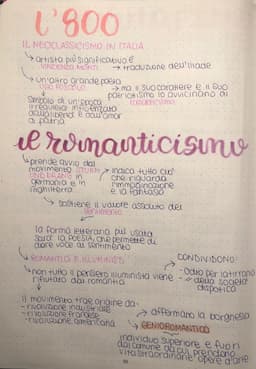 L'800
IL NEOCLASSICISMO IN ITALIA
→ artista più significativo è
VINCENZO MONTI → traduzione dell'Iliade
→ un altro grande poeta
UGO FOSCOLO → ma il suo carattere e il suo
patriottismo lo avvicinano al
romanticismo
simbolo di un'epoca
irrequieta influenzato
e dall'amor
di patria
il romanticismo
prende avvio dal
movimento STURM
UND DRANG in
germania e in
inghilterra
→ indica tutto ciò
che riguarda
l'immaginazione
e la fantasia
→ sostiene il valore assoluto del
sentimento
la forma letteraria più usata
sarà la POESIA, che permette di
dare voce al sentimento
ROMANTICI E ILLUMINISTI
→ non tutto il pensiero illuminista viene
rifiutato dai romantici
CONDIVIDONO:
- odio per la tirannia
- " della società
dispotica
il movimento trae origine da:
- rivoluzione industriale
- rivoluzione francese
- rivoluzione americana
→ affermano la borghesia
GENIO ROMANTICO
individuo superiore e fuori
dal comune da cui prendono
vita straordinarie opere d'arte